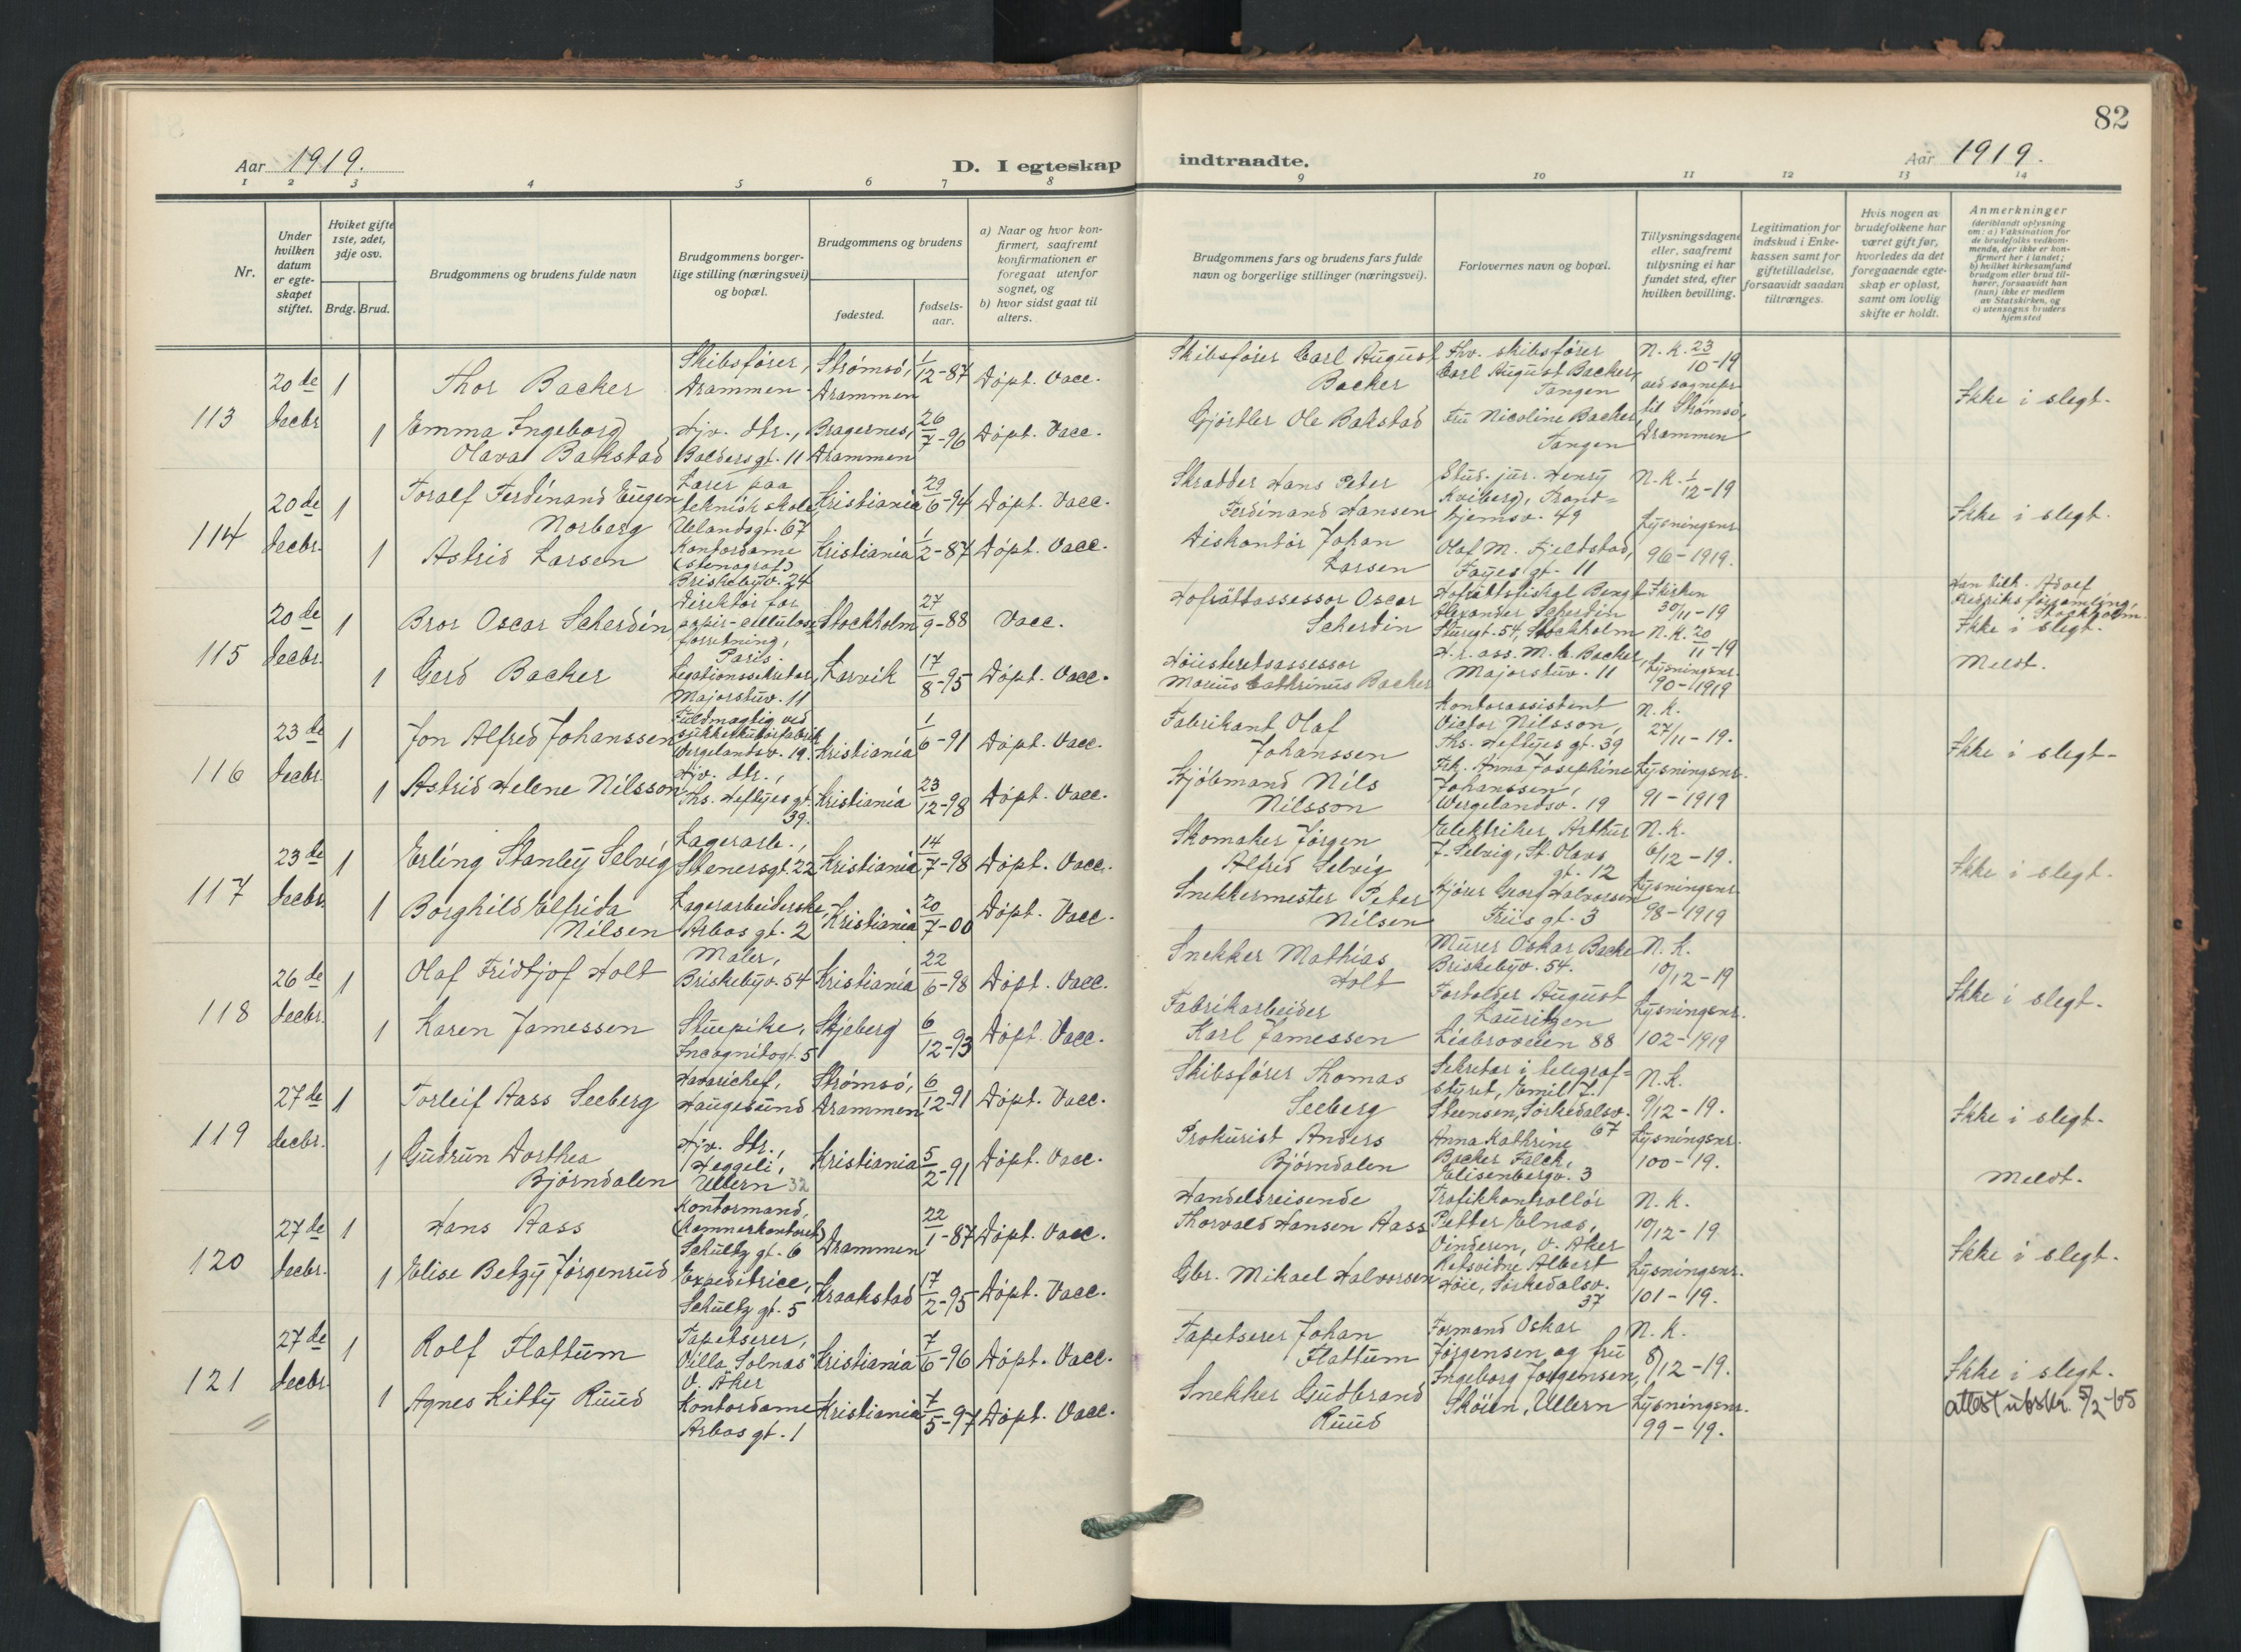 82
Aar 1919.
D. I egteskap indtraadte.
Aar 1919.
1 2 3 4 5 6 7 8 9 10 11 12 13 14
Nr.
Under hvilken datum er egteskapet stiftet.
Hviket gifte 1ste, 2det, 3dje osv.
Brdg. Brud.
Brudgommens og brudens fulde navn
Brudgommens borgerlige stilling (næringsvei) og bopæl.
Brudgommens og brudens
fødested.
fødselsaar.
a) Naar og hvor konfirmert, saafremt konfirmationen er foregaat utenfor sognet, og
b) hvor sidst gaat til alters.
Brudgommens fars og brudens fars fulde navn og borgerlige stillinger (næringsvei).
Forlovernes navn og bopæl.
Tillysningsdagene eller, saafremt tillysning ei har fundet sted, efter hvilken bevilling.
Legitimation for indskud i Enkekassen samt for giftetilladelse, forsaavidt saadan tiltrænges.
Hvis nogen av brudefolkene har været gift før, hvorledes da det foregaaende egteskap er opløst, samt om lovlig skifte er holdt.
Anmerkninger (deriblandt oplysning om: a) Vaksination for de brudefolks vedkommende, der ikke er konfirmert her i landet; b) hvilket kirkesamfund brudgom eller brud tilhører, forsaavidt han (hun) ikke er medlem av Statskirken, og c) utensogns bruders hjemsted
113
20de Decbr
1 Thor Backer
Skibsfører, Drammen
Strømsø, Drammen
1/12-87
Døpt. Vacc.
Skibsfører Carl August Backer
Fhv. skibsfører Carl August Backer, Tangen
N. K. 23/10-19 ved sognepr til Strømsø, Drammen
Ikke i slegt.
1 Emma Ingeborg Olava Bakstad
Hjv. dtr., Baldersgt. 11
Bragernes, Drammen
26/7-96
Døpt. Vacc.
Gjørtler Ole Bakstad
Fru Nicoline Backer, Tangen
114
20de Decbr.
1 Toralf Ferdinand Eugen Norberg
Lærer paa teknisk skole, Uelandsgt. 67
Kristiania
29/6-94
Døpt. Vacc.
Skrædder Hans Peter Ferdinand Hansen
Stud. jur. Henry Kviberg, Trondhjemsv. 49
N. K. 1/12-19
Lysningsnr 96-1919.
Ikke i slegt.
1 Astrid Larsen
Kontordame (stenograf) Briskebyv. 24
Kristiania
1/2-87
Døpt. Vacc.
Diskontør Johan Larsen
Olaf M. Fjeldstad, Fayes gt. 11
115
20de Decbr.
1 Bror Oscar Scherdin
Direktør for papir-cellulose forretning, Paris.
Stockholm
27/9-88
Vacc.
Hofrättassessor Oscar Scherdin
Hofrättsfiskal Bengt Alexander Scherdin Sturegt. 54, Stockholm
I kirken 30/11-19
N. K. 20/11-19
Lysningsnr. 90-1919
Han tilh. Adolf Fredriks församling, Stockholm.
Ikke i slegt.
Meldt.
1 Gerd Backer
Legationssekretær, Majorstuv. 11
Larvik
17/8-95
Døpt. Vacc.
Høiesteretsassessor Marius Cathrinus Backer
H.r. ass. M. C. Backer, Majorstuv. 11
116
23de Decbr.
1 Jon Alfred Johanssen
Fuldmægtig ved sukkertøifabrik Wergelandsv. 19.
Kristiania
1/6-91
Døpt. Vacc.
Fabrikant Olaf Johanssen
Kontorassistent Victor Nilsson, Ths. Heftyes gt. 39
N. K. 27/11-19.
Lysningsnr. 91-1919
Ikke i slegt-
1 Astrid Helene Nilsson
Hjv. dtr., Ths. Heftyes gt. 39.
Kristiania
23/12-98
Døpt. Vacc.
Kjøbmand Nils Nilsson
Frk. Anna Josephine Johanssen, Wergelandsv. 19
117
23de Decbr.
1 Erling Stanley Selvig
Lagerarb., Stenersgt. 22
Kristiania
14/7-98
Døpt. Vacc.
Skomaker Jørgen Alfred Selvig
Elektriker Arthur J. Selvig, St. Olavs gt. 12
N. K. 6/12-19.
Lysningsnr 98-1919
Ikke i slegt.
1 Borghild Elfrida Nilsen
Lagerarbeiderske, Arbos gt. 2
Kristiania
20/7-00
Døpt. Vacc.
Snekkermester Peter Nilsen
Kjører Georg Halvorsen Friis gt. 3
118
26de Decbr.
1 Olaf Fridtjof Holt
Maler, Briskebyv. 54
Kristiania
22/6-98
Døpt. Vacc.
Snekker Mathias Holt
Murer Oskar Backe Briskebyv. 54.
N. K. 10/12-19
Lysningsnr. 102-1919
Ikke i slegt.
1 Karen Jamessen
Stuepike, Incognitogt. 5
Skjeberg
6/12-93
Døpt. Vacc.
Fabrikarbeider Karl Jamessen
Forvalter August Lauritzen Liabroveien 88
119
27de Decbr.
1 Torleif Aass Seeberg
Havarichef, Haugesund
Strømsø, Drammen
6/12-91
Døpt. Vacc.
Skibsfører Thomas Seeberg
Sekretær i telegrafstyret, Emil Z. Steensen, Sørkedalsv. 67
N. K. 9/12-19.
Lysningsnr. 100-19.
Ikke i slegt.
Meldt.
1 Gudrun Dorthea Bjørndalen
Hjv. dtr., Heggeli, Ullern 32
Kristiania
5/2-91
Døpt. Vacc.
Prokurist Anders Bjørndalen
Anna Kathrine Backer Falck, Elisenbergv. 3
120
27de Decbr.
1 Hans Aass
Kontormand, (Kæmnerkontoret) Schultz gt. 6
Drammen
22/1-87
Døpt. Vacc.
Handelsreisende Thorvald Hansen Aass
Trafikkontrollør Petter Elnæs, Vinderen, V. Aker
N. K. 10/12-19
Lysningsnr. 101-19.
Ikke i slegt.
1 Elise Betzy Jørgensrud
Expeditrice, Schultz gt. 5
Kraakstad
17/2-95
Døpt. Vacc.
Gbr. Mikael Halvorsen
Retsvidne Albert Høie, Sørkedalsv. 37
121
27de Decbr.
1 Rolf Flattum
Tapetserer, Villa "Solnæs" V. Aker
Kristiania
7/6-96
Døpt. Vacc.
Tapetserer Johan Flattum
Formand Oskar Jørgensen og fru Ingeborg Jørgensen, Skøien, Ullern
N. K. 8/12-19.
Lysningsnr. 99-19.
Ikke i slegt.
attest utskr. 5/2-65
1 Agnes Kitty Ruud
Kontordame Arbos gt. 1
Kristiania
7/5-97
Døpt. Vacc.
Snekker Gudbrand Ruud